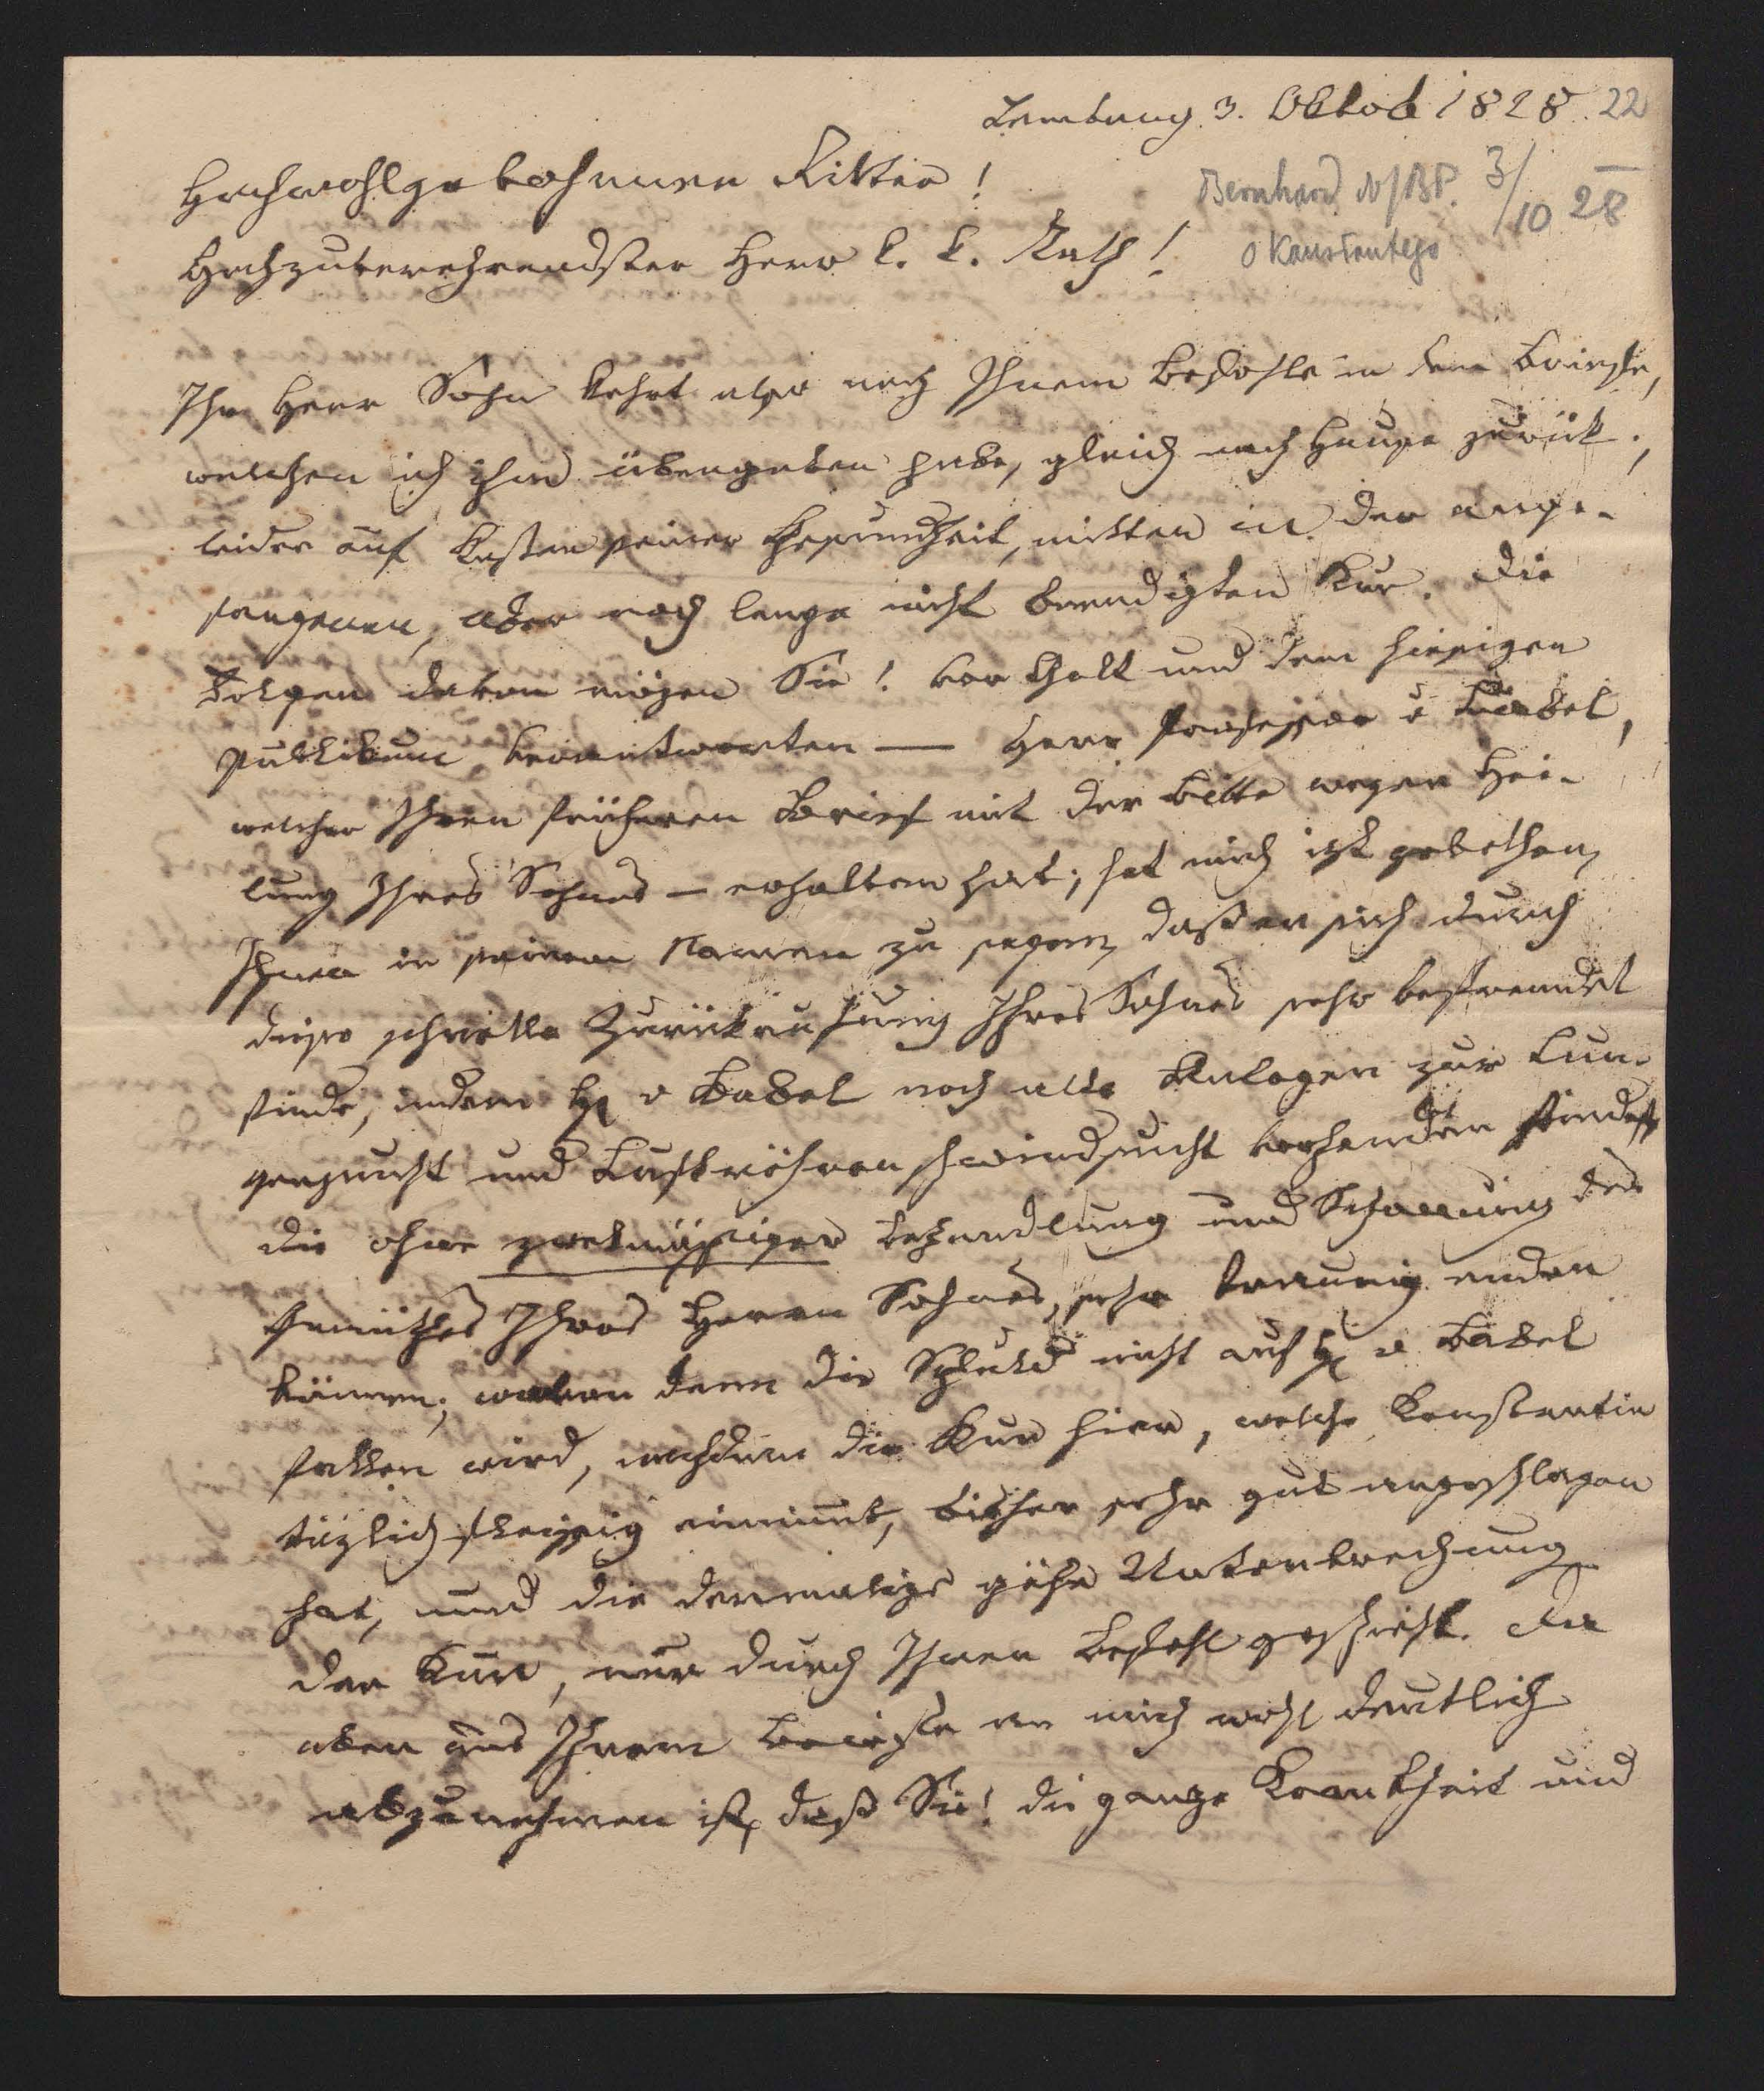 Lemberg 3. Oktob 1828. 22
Hochwohlgebohrner Ritter!
Bernhard 3/10 28
Hochzuverehrendster Herr k. k. Rath!
o Konstantego
Ihr Herr Sohn kehrt also nach Ihrem Befehle in dem Briefe,
welchen ich ihm übergeben habe, gleich nach Hause zurück;
leider auf Kosten seiner Gesundheit, mitten in der ange-
fangenen, aber noch lange nicht beendigten Kur. Die
Folgen davon mögen Sie! vor Gott und dem hiesigen
Publikum verantworten — Herr Professor v Babel,
welcher Ihren früheren Brief mit der Bitte wegen Hei-
lung Ihres Sohnes – erhalten hat; hat mich izt gebethen,
Ihnen in seinem Namen zu sagen, daß er sich durch
diese schnelle Zurückrufung Ihres Sohnes sehr befremdet
finde, indem H v Babel noch alle Anlagen zur Lun-
gensucht und Luftröhrenschwindsucht vorhanden findet
die ohne zwekmässiger Behandlung und Schonung des
Gemüthes Ihres Herrn Sohnes, sehr traurig enden
können; wovon dann die Schuld nicht auf H v Babel
fallen wird, nachdem die Kur hier, welche Konstantin
täglich fleissig einnimt, bisher sehr gut angeschlagen
hat, und die dermalige gähe Unterbrechung
der Kur, nur durch Ihren Befehl geschieht. Da
aber aus Ihrem Briefe an mich wohl deutlich
abzunehmen ist, daß Sie! die ganze Krankheit und